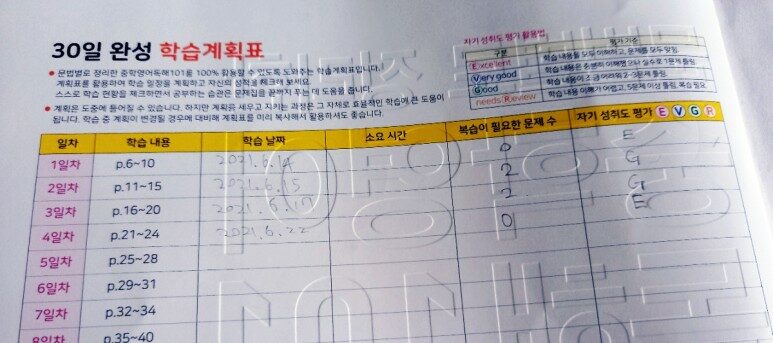 30일 완성 학습계획표
● 문법별로 정리한 중학영어독해101를 100% 활용할 수 있도록 도와주는 학습계획표입니다.
계획표를 활용하여 학습 일정을 계획하고 자신의 성적을 체크해 보세요.
스스로 학습 현황을 체크하면서 공부하는 습관은 문제집을 끝까지 푸는 데 도움을 줍니다.
● 계획은 도중에 틀어질 수 있습니다. 하지만 계획을 세우고 지키는 과정은 그 자체로 효율적인 학습에 큰 도움이
됩니다. 학습 중 계획이 변경될 경우에 대비해 계획표를 미리 복사해서 활용하셔도 좋습니다.
자기 성취도 평가 활용법
구분 평가 기준
Excellent 학습 내용을 모두 이해하고, 문제를 모두 맞힘
Very good 학습 내용은 충분히 이해했으나 실수로 1문제 틀림
Good 학습 내용이 조금 어려워 2~3문제 틀림
needs Review 학습 내용 이해가 어렵고, 5문제 이상 틀림, 복습 필요
일차 학습 내용 학습 날짜 소요 시간 복습이 필요한 문제 수 자기 성취도 평가 E V G R
1일차 p.6~10 2021.6.14 0 E
2일차 p.11~15 2021.6.15 2 G
3일차 p.16~20 2021.6.17 2 G
4일차 p.21~24 2021.6.22 0 E
5일차 p.25~28
6일차 p.29~31
7일차 p.32~34
8일차 p.35~40